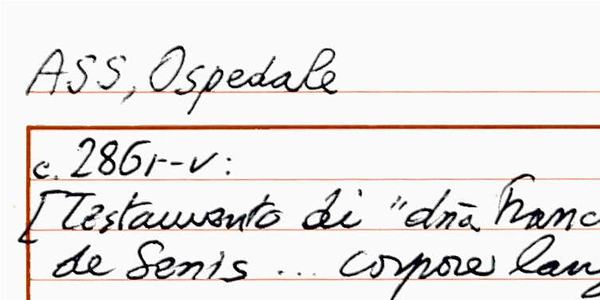 ASS, Ospedale
c. 286r-v:
[Testamento di "dnā Franc
de Senis ... corpore lang